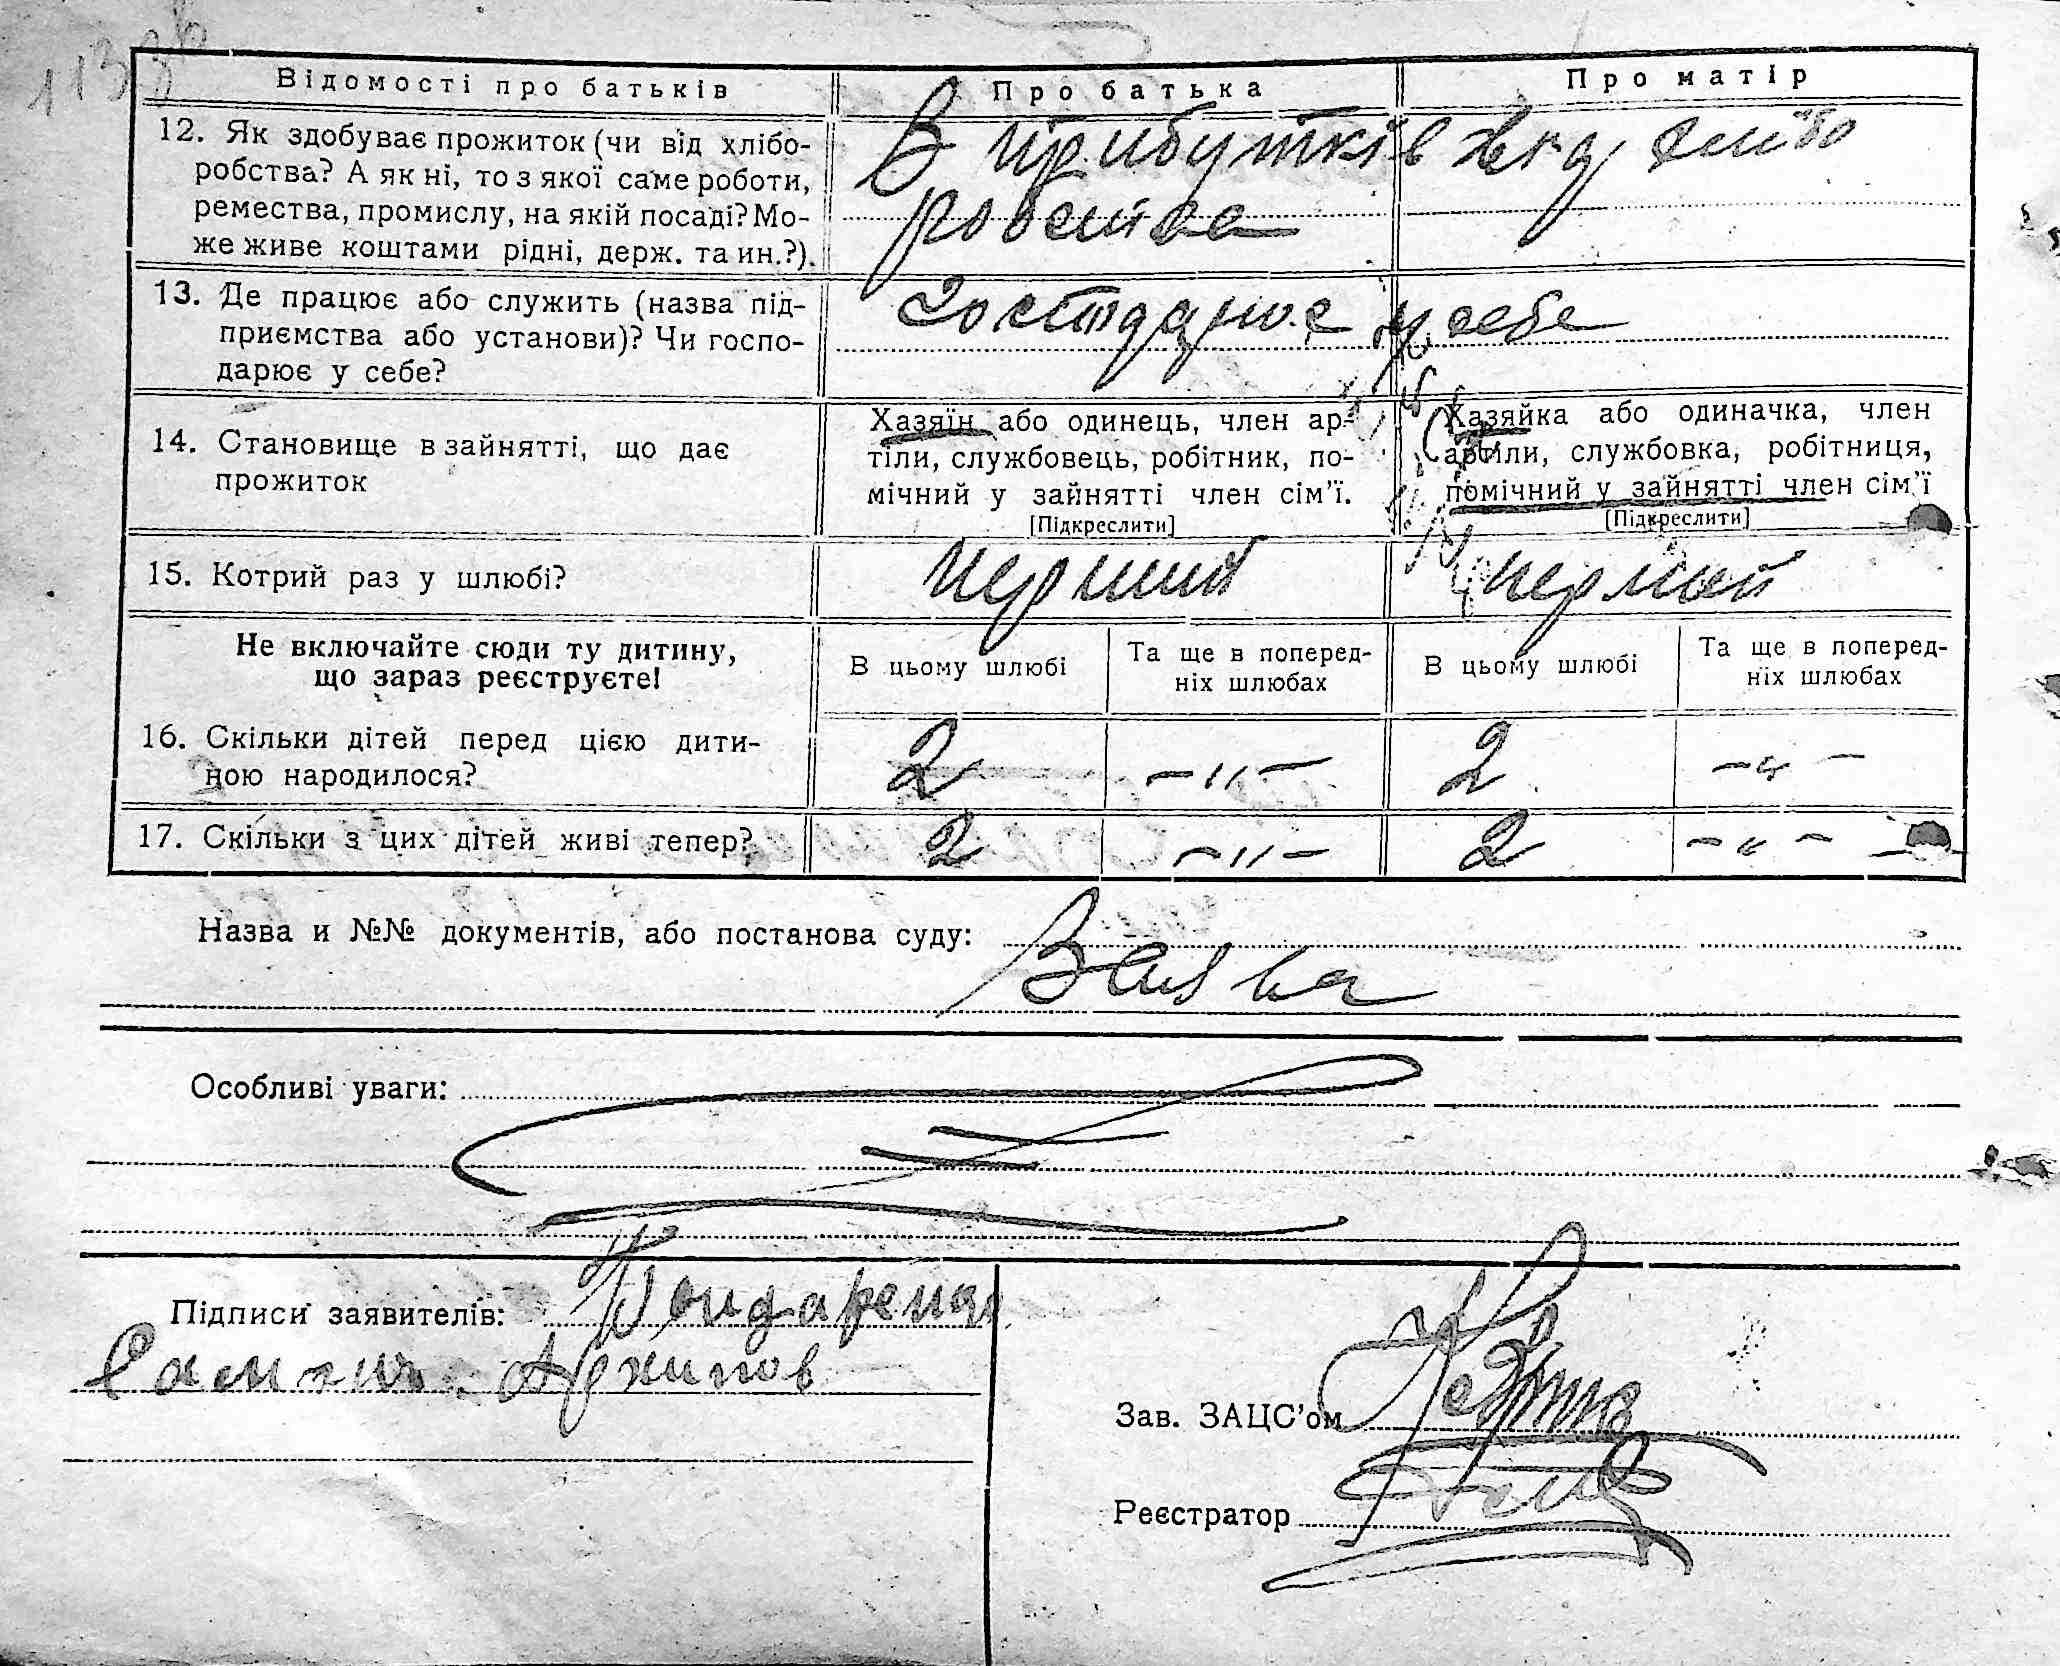 Відомості про батьків
Про батька
Про матір
12. Як здобуває прожиток (чи від хлібо-
робства? А як ні, то з якої саме роботи,
ремества, промислу, на якій посаді? Мо-
же живе коштами рідні, держ. та ин.?).
В прибутків від хлібо
робства
13. Де працює або служить (назва під-
приємства або установи)? Чи госпо-
дарює у себе?
Господарює у себе
14. Становище в зайнятті, що дає
прожиток
Хазяїн або одинець, член ар-
тіли, службовець, робітник, по-
мічний у зайнятті член сім'ї.
[Підкреслити]
Хазяйка або одиначка, член
артіли, службовка, робітниця,
помічний у зайнятті член сім'ї
[Підкреслити]
15. Котрий раз у шлюбі?
перший
перший
Не включайте сюди ту дитину,
що зараз реєструєте!
В цьому шлюбі
Та ще в поперед-
ніх шлюбах
В цьому шлюбі
Та ще в поперед-
ніх шлюбах
16. Скільки дітей перед цією дити-
ною народилося?
2
-"-
2
-"-
17. Скільки з цих дітей живі тепер?
2
-"-
2
-"-
Назва и №№ документів, або постанова суду:
Заява
Особливі уваги:
Підписи заявителів:
Архипов
Зав. ЗАЦС'ом
Реєстратор